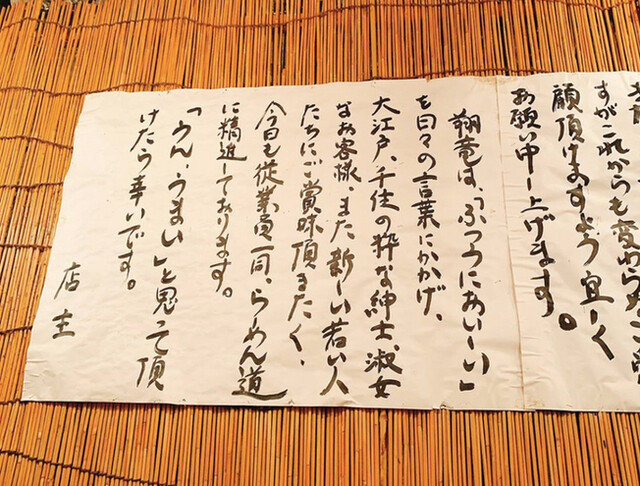 すがこれからも変わらぬご
顧頂けますよう宜しく
お願い申し上げます。
翔竜は、「ふつうにおいしい」
を日々の言葉にかかげ、
大江戸、千住の粋な紳士、淑女
なお客様、また新しい若い人
たちにご賞味頂きたく、
今日も従業員一同、らーめん道
に精進しております。
「うん、うまい」と思って頂
けたら幸いです。
店主